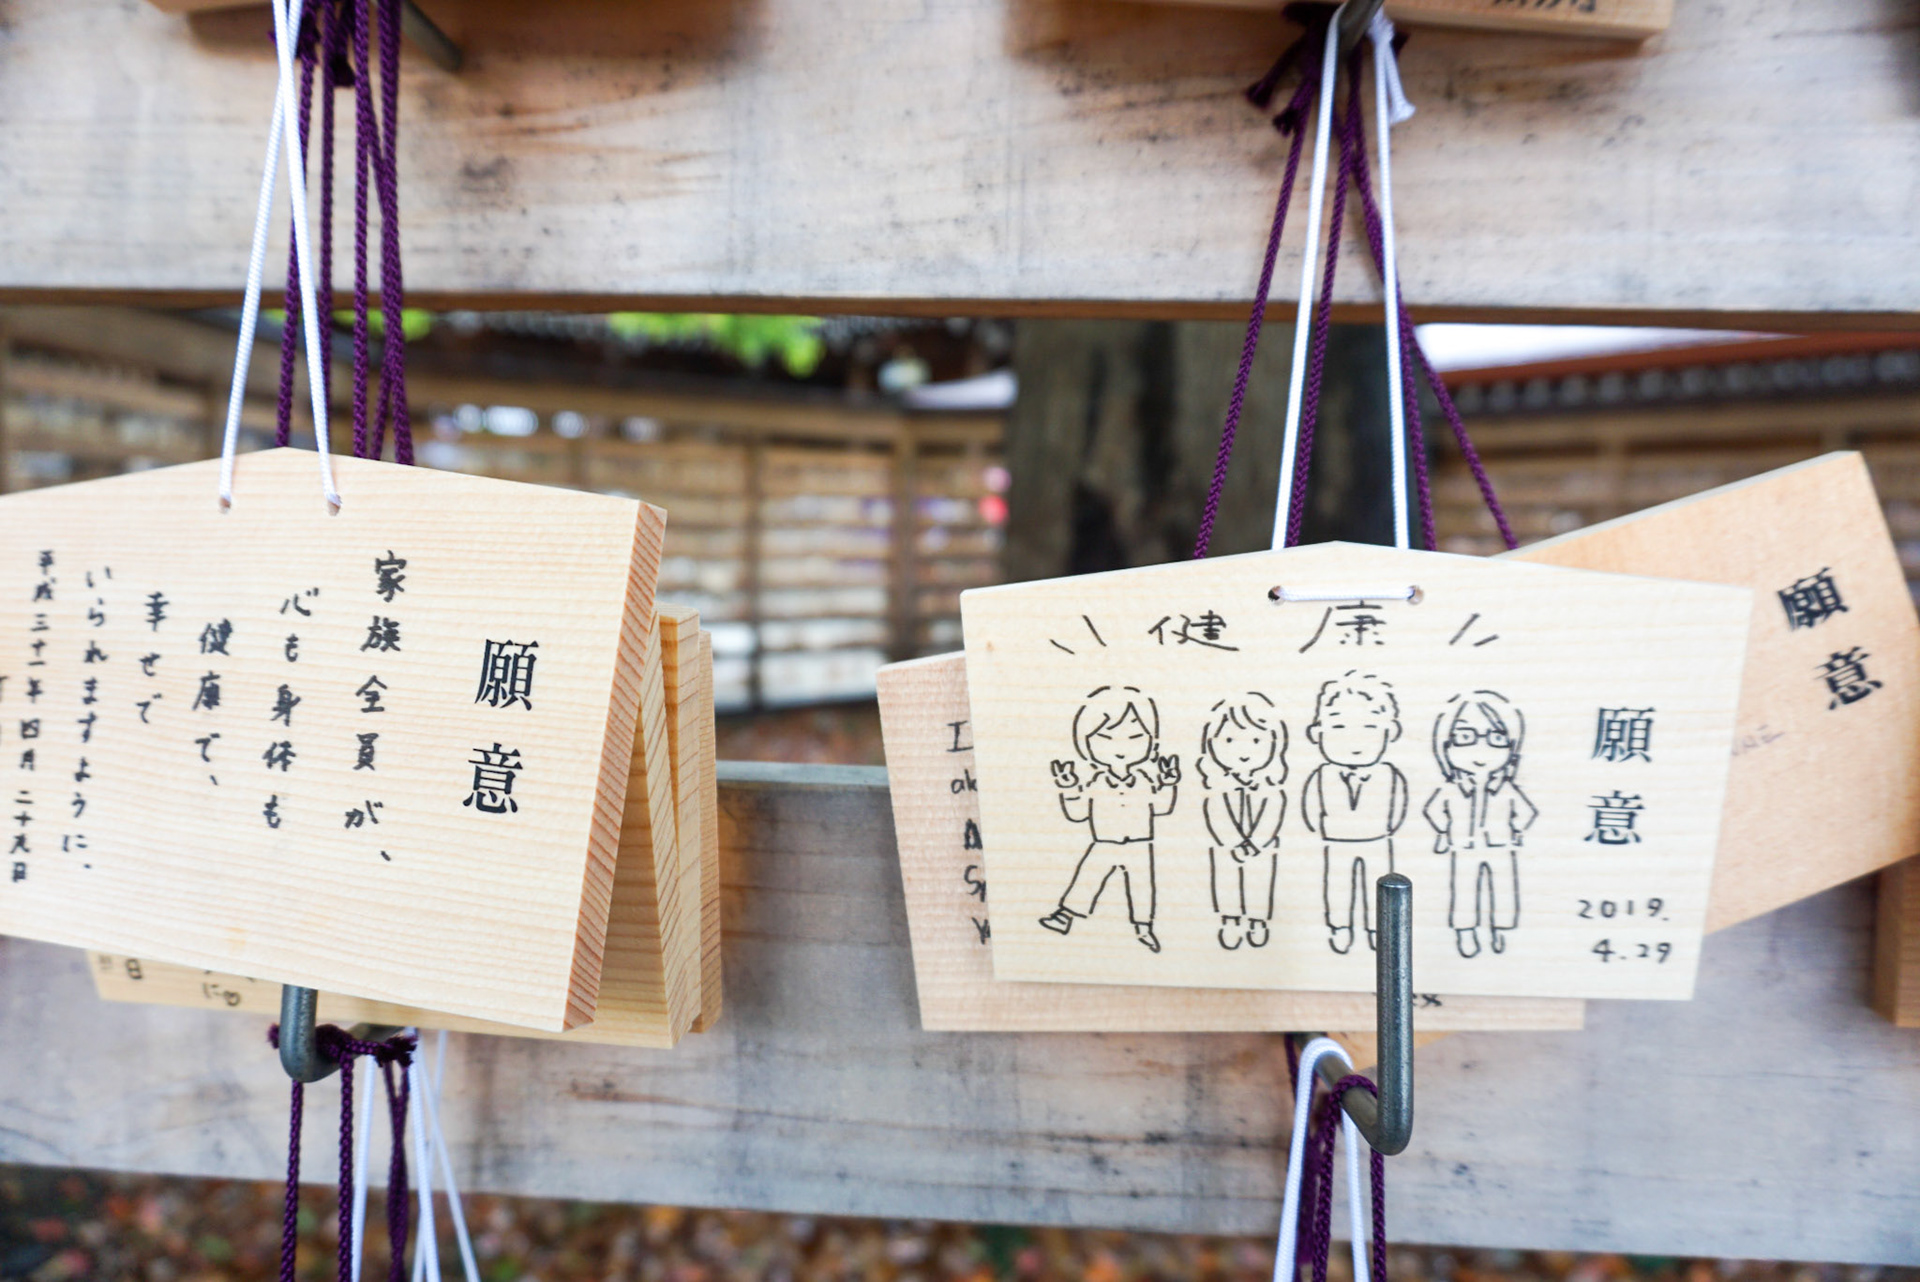 願意
家族全員が、
心も身体も
健康で、
幸せで
いられますように.
平成三十一年四月二十九日
日
に♡
健康
願意
2019.
4.29
願意
I